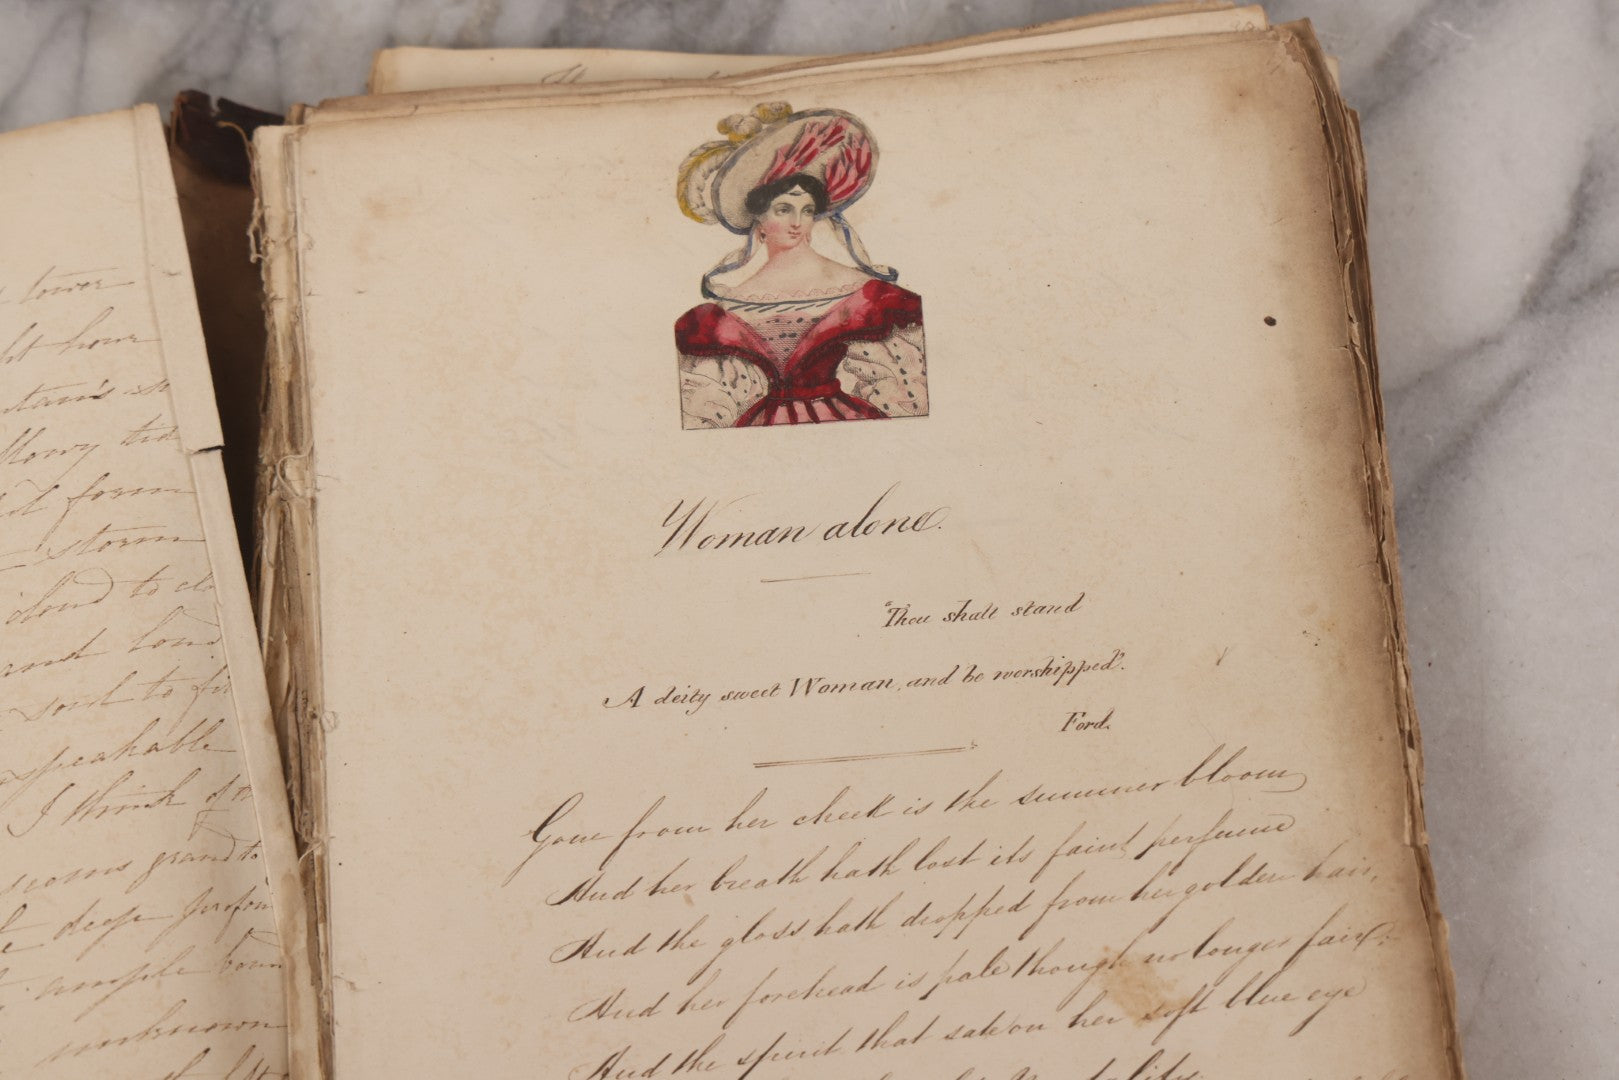 tower
ht hour
tain's so
form
storm
cloud to clo
and loud
soul to fi
speakable
I think of
seems grand to
deep profou
ample boun
unknown
Woman alone.
"Thou shalt stand
A deity sweet Woman, and be worshipped".
Ford.
Gone from her cheek is the summer bloom
And her breath hath lost its faint perfume
And the gloss hath dropped from her golden hair,
And her forehead is pale though no longer fair,
And the spirit that sate on her soft blue eye